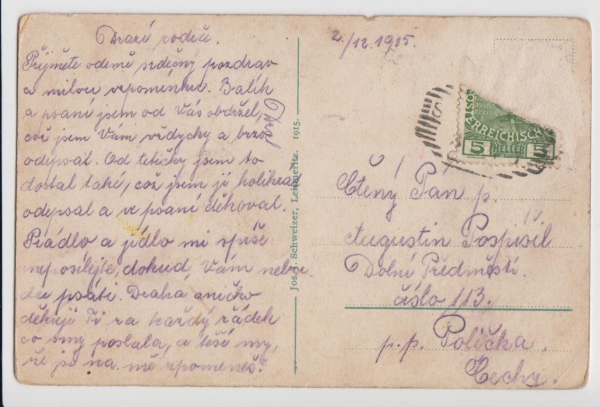 Drazí rodiče.
Přijměte odemě srdečný pozdrav
a milou vzpomínku. Balík
a psaní jsem od Vás obdržel,
což jsem Vám vždycky a brzo
odepsal. Od tetičky jsem to
dostal také, což jsem jí
odepsal a ve psaní děkoval.
Prádlo a jídlo mi spíše
neposílejte, dokud Vám nebu
du psáti. Drahá aničko
děkuji Ti za každý řádek
co smy poslala, a těší my,
že jo na mě zpomeneš.
Jos. A. Schweizer, Leitmeritz. 1915.
2/12 1915.
OSTE
ERREICHISCHE
5 HELLER 5
Ctěný Pán p.
Augustin Pospíšil
Dolní Předměstí.
číslo 113.
p.p. Polička.
Čechy.